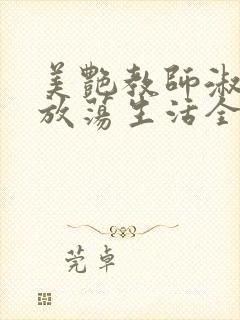 美艷教師淑
放蕩生活全
莞卓